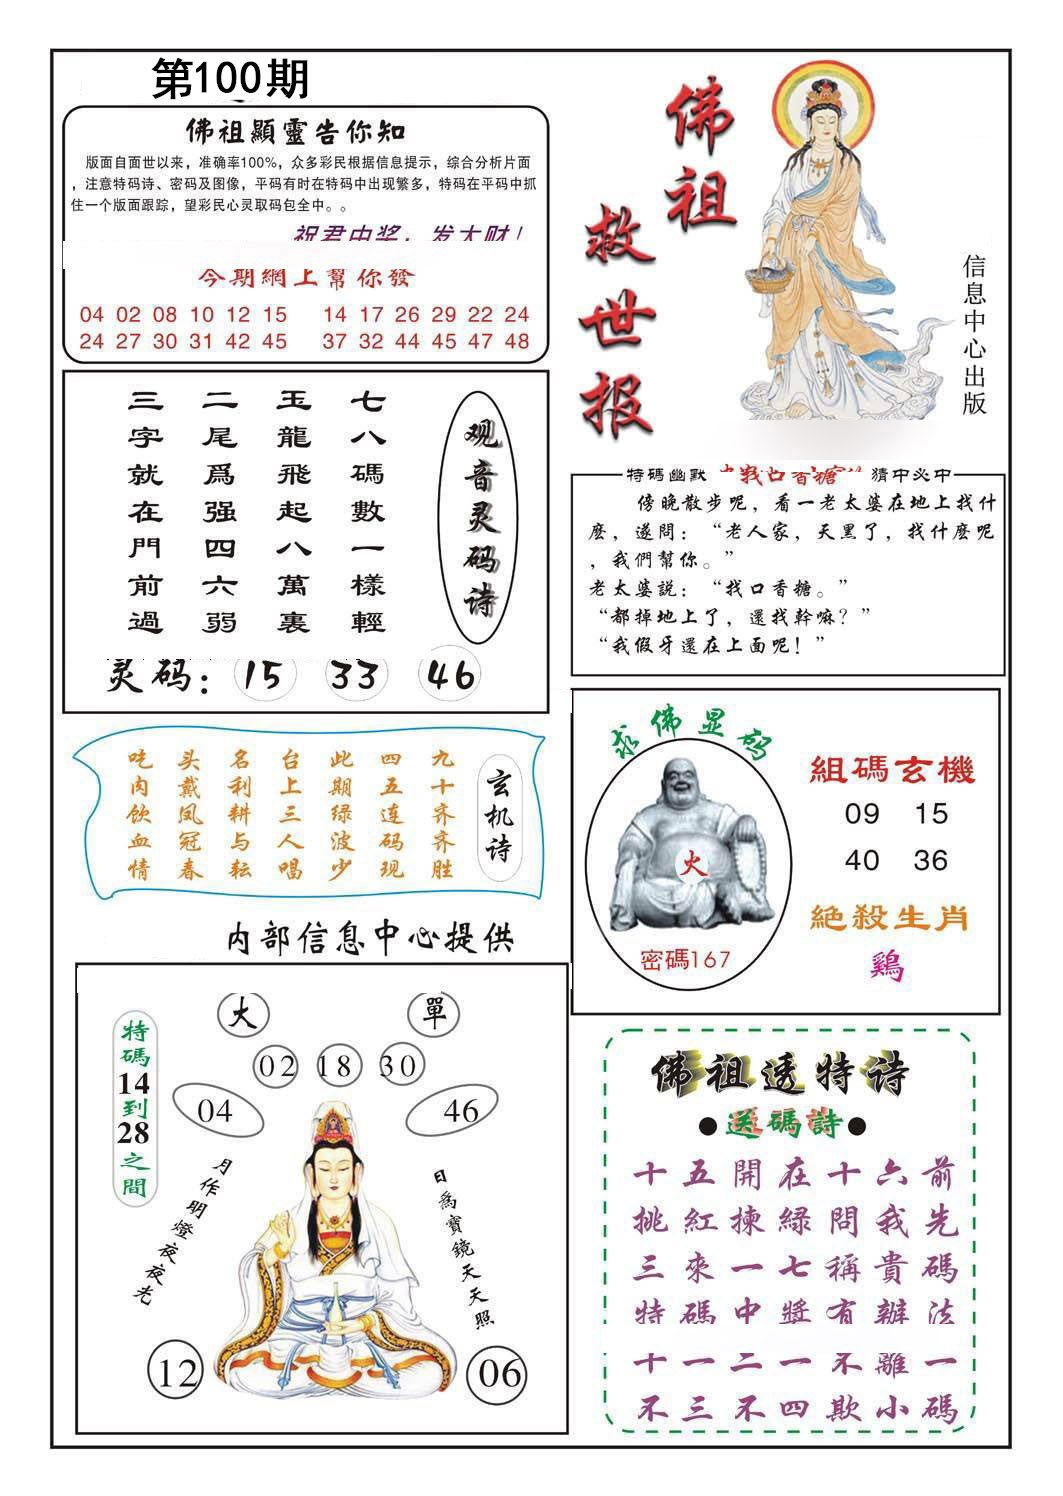 第100期
佛祖顯靈告你知
版面自面世以来，准确率100%，众多彩民根据信息提示，综合分析片面
，注意特码诗、密码及图像，平码有时在特码中出现繁多，特码在平码中抓
住一个版面跟踪，望彩民心灵取码包全中。。
祝君中奖，发大财！
今期網上幫你發
04 02 08 10 12 15 14 17 26 29 22 24
24 27 30 31 42 45 37 32 44 45 47 48
佛祖
救世报
信息中心出版
观音灵码诗
七八碼數一樣輕
玉龍飛起八萬裏
二尾爲强四六弱
三字就在門前過
灵码：15 33 46
特碼幽默 找口香糖 猜中必中
傍晚散步呢，看一老太婆在地上找什
麽，遂問：“老人家，天黑了，找什麽呢
，我們幫你。”
老太婆説：“找口香糖。”
“都掉地上了，還找幹嘛？”
“我假牙還在上面呢！”
玄机诗
九十齐齐胜
四五连码现
此期绿波少
台上三人唱
名利耕与耘
头戴凤冠春
吃肉饮血情
求佛显码
火
密碼167
組碼玄機
09 15
40 36
絕殺生肖
鷄
内部信息中心提供
特碼14到28之間
大 單
02 18 30
04 46
月作明燈夜夜光
日爲寶鏡天天照
12 06
佛祖透特诗
●送碼詩●
十五開在十六前
挑紅揀緑問我先
三來一七稱貴碼
特碼中獎有辦法
十一二一不離一
不三不四欺小碼